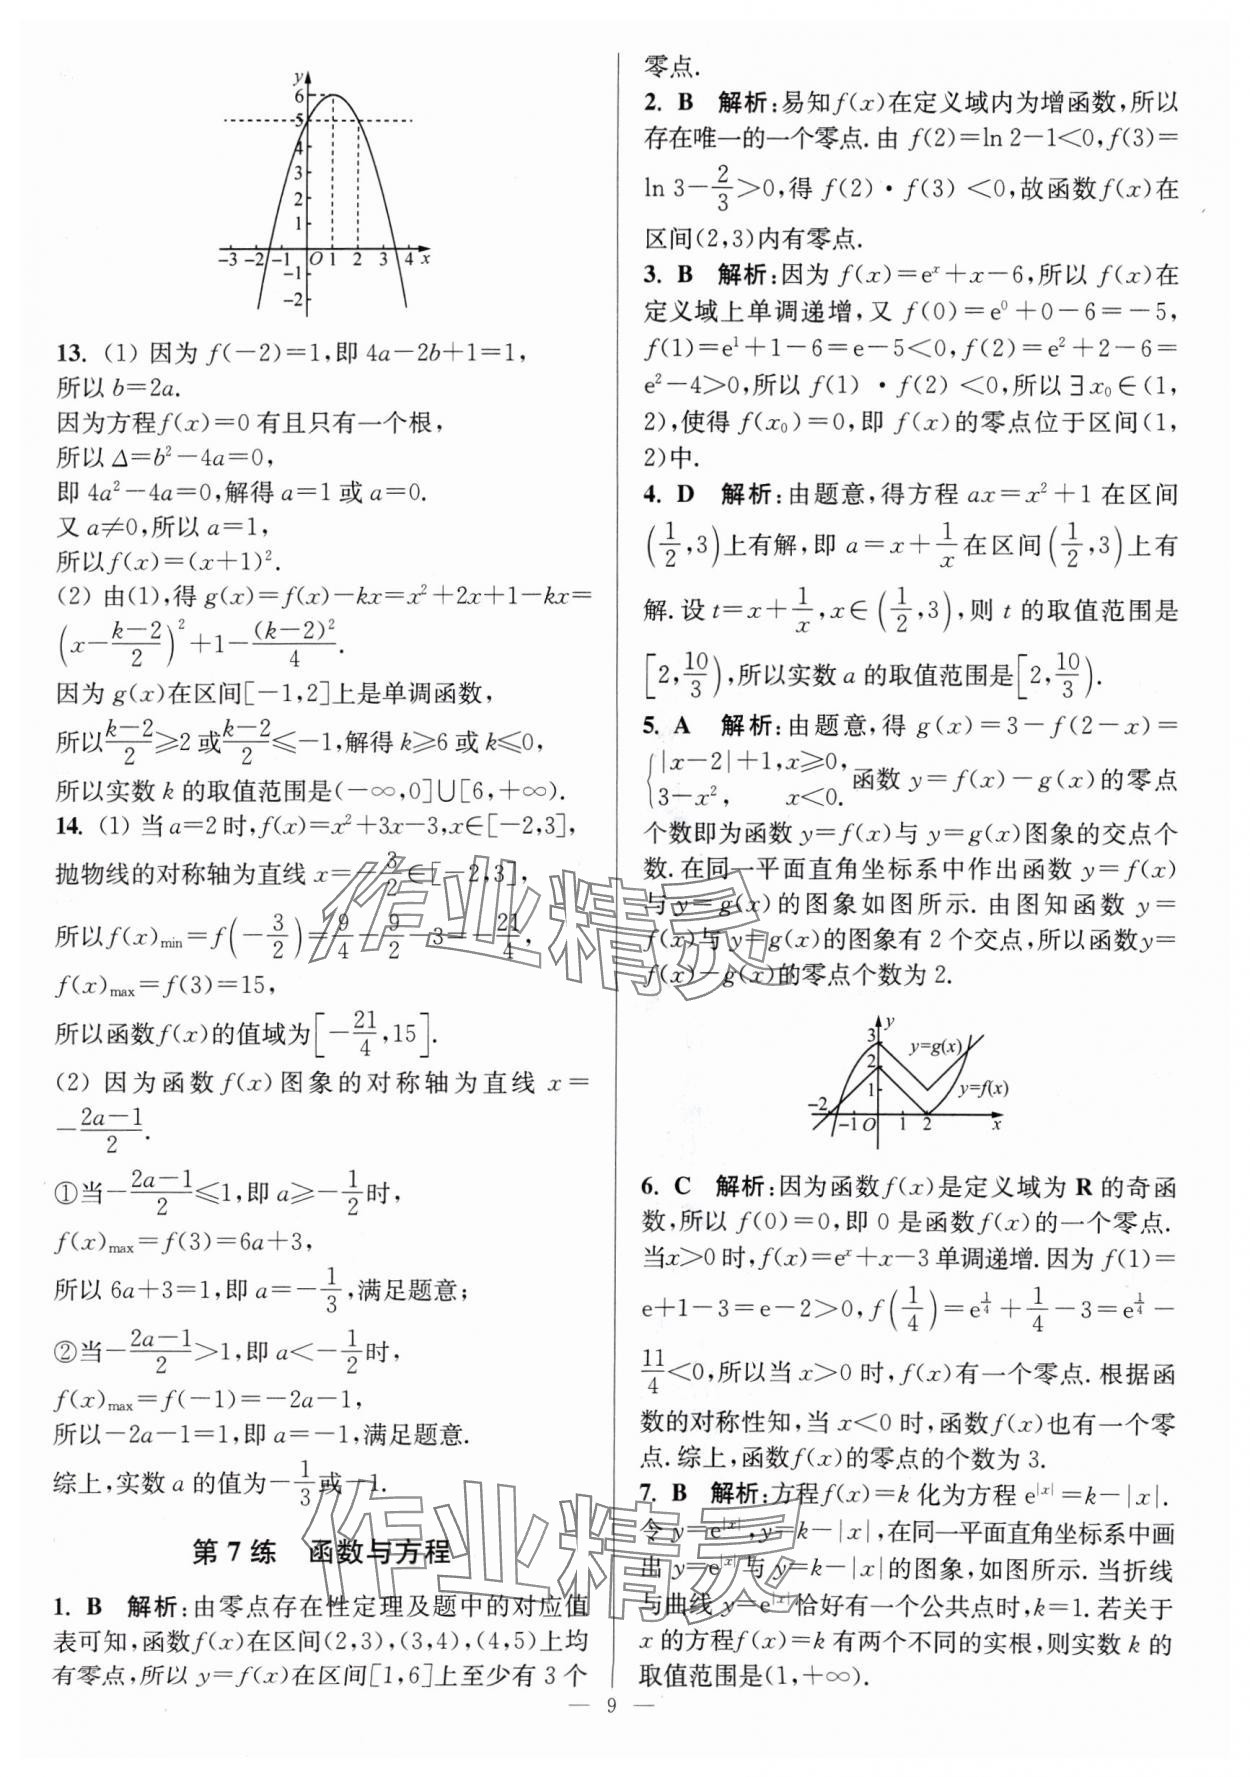 y
6
5
4
3
2
1
-3 -2 -1 O 1 2 3 4 x
-1
-2
13. (1) 因为 f(-2)=1,即 4a-2b+1=1,
所以 b=2a.
因为方程f(x)=0 有且只有一个根,
所以 Δ=b²-4a=0,
即 4a²-4a=0,解得 a=1 或 a=0.
又 a≠0,所以 a=1,
所以f(x)=(x+1)².
(2) 由(1),得 g(x)=f(x)-kx=x²+2x+1-kx=
(x-(k-2)/2)²+1-(k-2)²/4.
因为 g(x)在区间[-1,2]上是单调函数,
所以(k-2)/2≥2或(k-2)/2≤-1,解得 k≥6 或 k≤0,
所以实数 k 的取值范围是(-∞,0]∪[6,+∞).
14. (1) 当 a=2 时,f(x)=x²+3x-3,x∈[-2,3],
抛物线的对称轴为直线 x=-3/2∈[-2,3],
所以f(x)min=f(-3/2)=9/4-9/2-3=-21/4,
f(x)max=f(3)=15,
所以函数f(x)的值域为[-21/4,15].
(2) 因为函数 f(x)图象的对称轴为直线 x=
-(2a-1)/2.
①当-(2a-1)/2≤1,即 a≥-1/2时,
f(x)max=f(3)=6a+3,
所以 6a+3=1,即 a=-1/3,满足题意;
②当-(2a-1)/2>1,即 a<-1/2时,
f(x)max=f(-1)=-2a-1,
所以-2a-1=1,即 a=-1,满足题意.
综上,实数 a 的值为-1/3或-1.
第 7 练 函数与方程
1. B 解析:由零点存在性定理及题中的对应值
表可知,函数f(x)在区间(2,3),(3,4),(4,5)上均
有零点,所以 y=f(x)在区间[1,6]上至少有 3 个
零点.
2. B 解析:易知f(x)在定义域内为增函数,所以
存在唯一的一个零点.由 f(2)=ln 2-1<0,f(3)=
ln 3-2/3>0,得 f(2)·f(3)<0,故函数f(x)在
区间(2,3)内有零点.
3. B 解析:因为 f(x)=eˣ+x-6,所以 f(x)在
定义域上单调递增,又 f(0)=e⁰+0-6=-5,
f(1)=e¹+1-6=e-5<0,f(2)=e²+2-6=
e²-4>0,所以 f(1)·f(2)<0,所以∃x₀∈(1,
2),使得 f(x₀)=0,即 f(x)的零点位于区间(1,
2)中.
4. D 解析:由题意,得方程 ax=x²+1 在区间
(1/2,3)上有解,即 a=x+1/x在区间(1/2,3)上有
解.设 t=x+1/x,x∈(1/2,3),则 t 的取值范围是
[2,10/3),所以实数 a 的取值范围是[2,10/3).
5. A 解析:由题意,得 g(x)=3-f(2-x)=
{|x-2|+1,x≥0,
3-x², x<0. 函数 y=f(x)-g(x)的零点
个数即为函数 y=f(x)与 y=g(x)图象的交点个
数.在同一平面直角坐标系中作出函数 y=f(x)
与 y=g(x)的图象如图所示.由图知函数 y=
f(x)与 y=g(x)的图象有 2 个交点,所以函数y=
f(x)-g(x)的零点个数为 2.
y
3
2
1
y=g(x)
y=f(x)
-2 -1 O 1 2 x
6. C 解析:因为函数f(x)是定义域为 R 的奇函
数,所以 f(0)=0,即 0 是函数f(x)的一个零点.
当x>0 时,f(x)=eˣ+x-3 单调递增.因为 f(1)=
e+1-3=e-2>0,f(1/4)=e^(1/4)+1/4-3=e^(1/4)-
11/4<0,所以当 x>0 时,f(x)有一个零点.根据函
数的对称性知,当 x<0 时,函数f(x)也有一个零
点.综上,函数f(x)的零点的个数为 3.
7. B 解析:方程f(x)=k 化为方程 e^|x|=k-|x|.
令 y=e^|x|,y=k-|x|,在同一平面直角坐标系中画
出 y=e^|x|与 y=k-|x|的图象,如图所示.当折线
与曲线 y=e^|x|恰好有一个公共点时,k=1.若关于
x 的方程f(x)=k 有两个不同的实根,则实数 k 的
取值范围是(1,+∞).
— 9 —
作业精灵
作业精灵